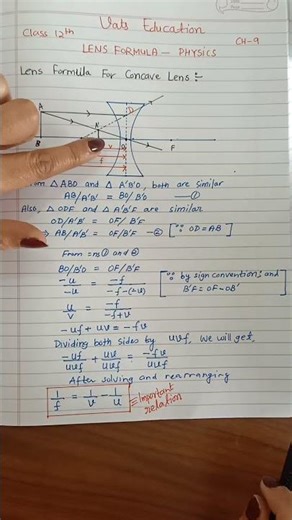 Vats Education
Class 12th
CH-9
LENS FORMULA - PHYSICS
Lens Formula For Concave Lens :-
A
B
D
F
From △ABO and △A'B'O, both are similar
AB/A'B' = BO/B'O —①
Also, △ODF and △A'B'F are similar
OD/A'B' = OF/B'F
⇒ AB/A'B' = OF/B'F —② [∵ OD=AB]
From =ns① and ②
BO/B'O = OF/B'F [∵ by sign convention, and
-u/-v = -f/-f-(-v) B'F = OF-OB']
u/v = -f/-f+v
-uf + uv = -fv
Dividing both sides by uvf, we will get,
-uf/uvf + uv/uvf = -fv/uvf
After solving and rearranging
1/f = 1/v - 1/u = Important relation